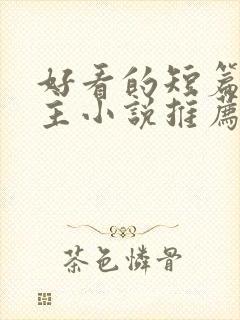 好看的短篇
主小說推薦
茶色憐骨